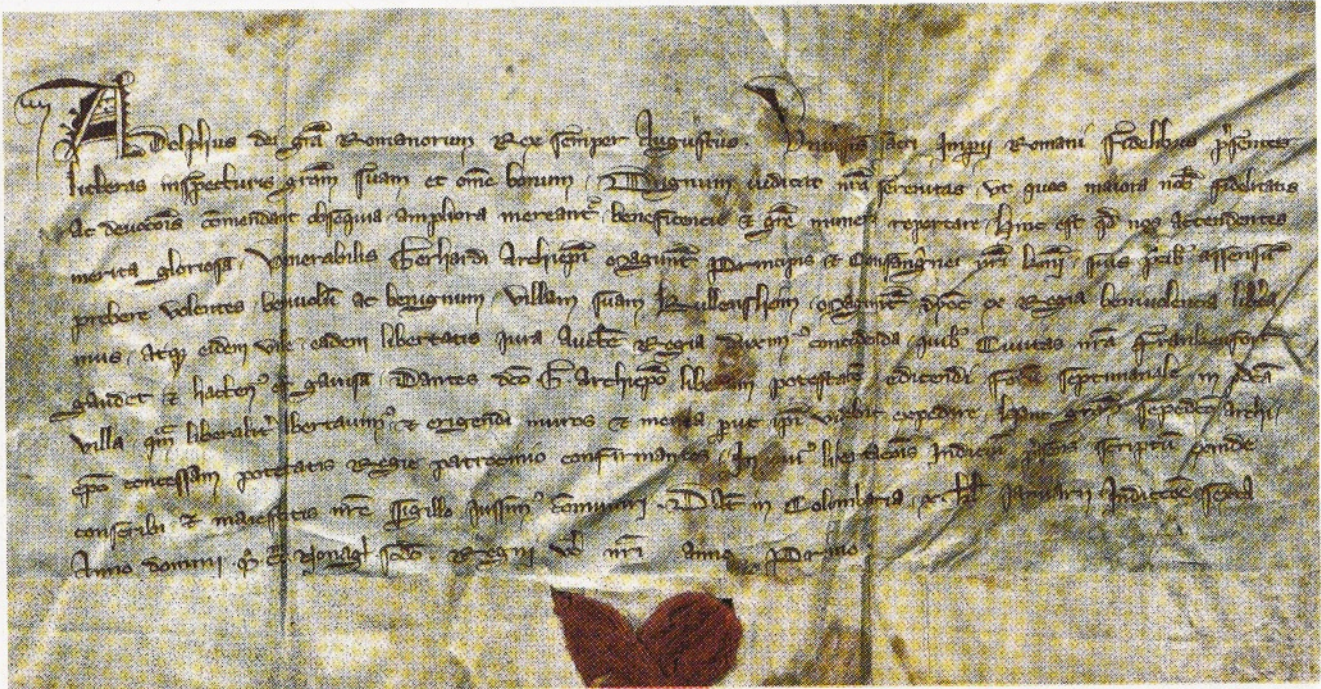 Adolphus dei gra Romanorum Rex semper Augustus. Universis sacri Imperii Romani fidelibus presentes
litteras inspecturis gram suam et omne bonum. Dignum iudicat nra serenitas, ut quos maiora nob fidelitatis
Ac devocois comendant obsequia, ampliora mereant beneficencie et gre reportare. Hinc est qd nos attendentes
merita gloriosa, Venerabilis Gerhardi Archiepi Magunt Principis et Consangnei nri suis assensu
prebere volentes benivolu ac benignum, villam suam Magunt ex Regia benivolencia
mus, Atq eidem ville, eadem libertatis jura Auctte Regia duxim concedenda, quib Civitas nra Frankenfort
gaudet et hacten est gavisa. Dantes dco G. Archiepo liberam potestate edicendi foru septimanale in dca
villa, qm liberalit libertavim, et erigendi muros et menia, put ipi videbit expedire. Hanc gram sepedco Archi
epo concessam potestatis Regie patrocinio confirmantes. In cui libertacois Indiciu psens scriptu exinde
conscribi et maiestatis nre Sigillo jussim comuniri. Dat in Columbaria, kl Januarii, Indictoe sexta
Anno domini nonag scdo Regni vo nri anno Primo.